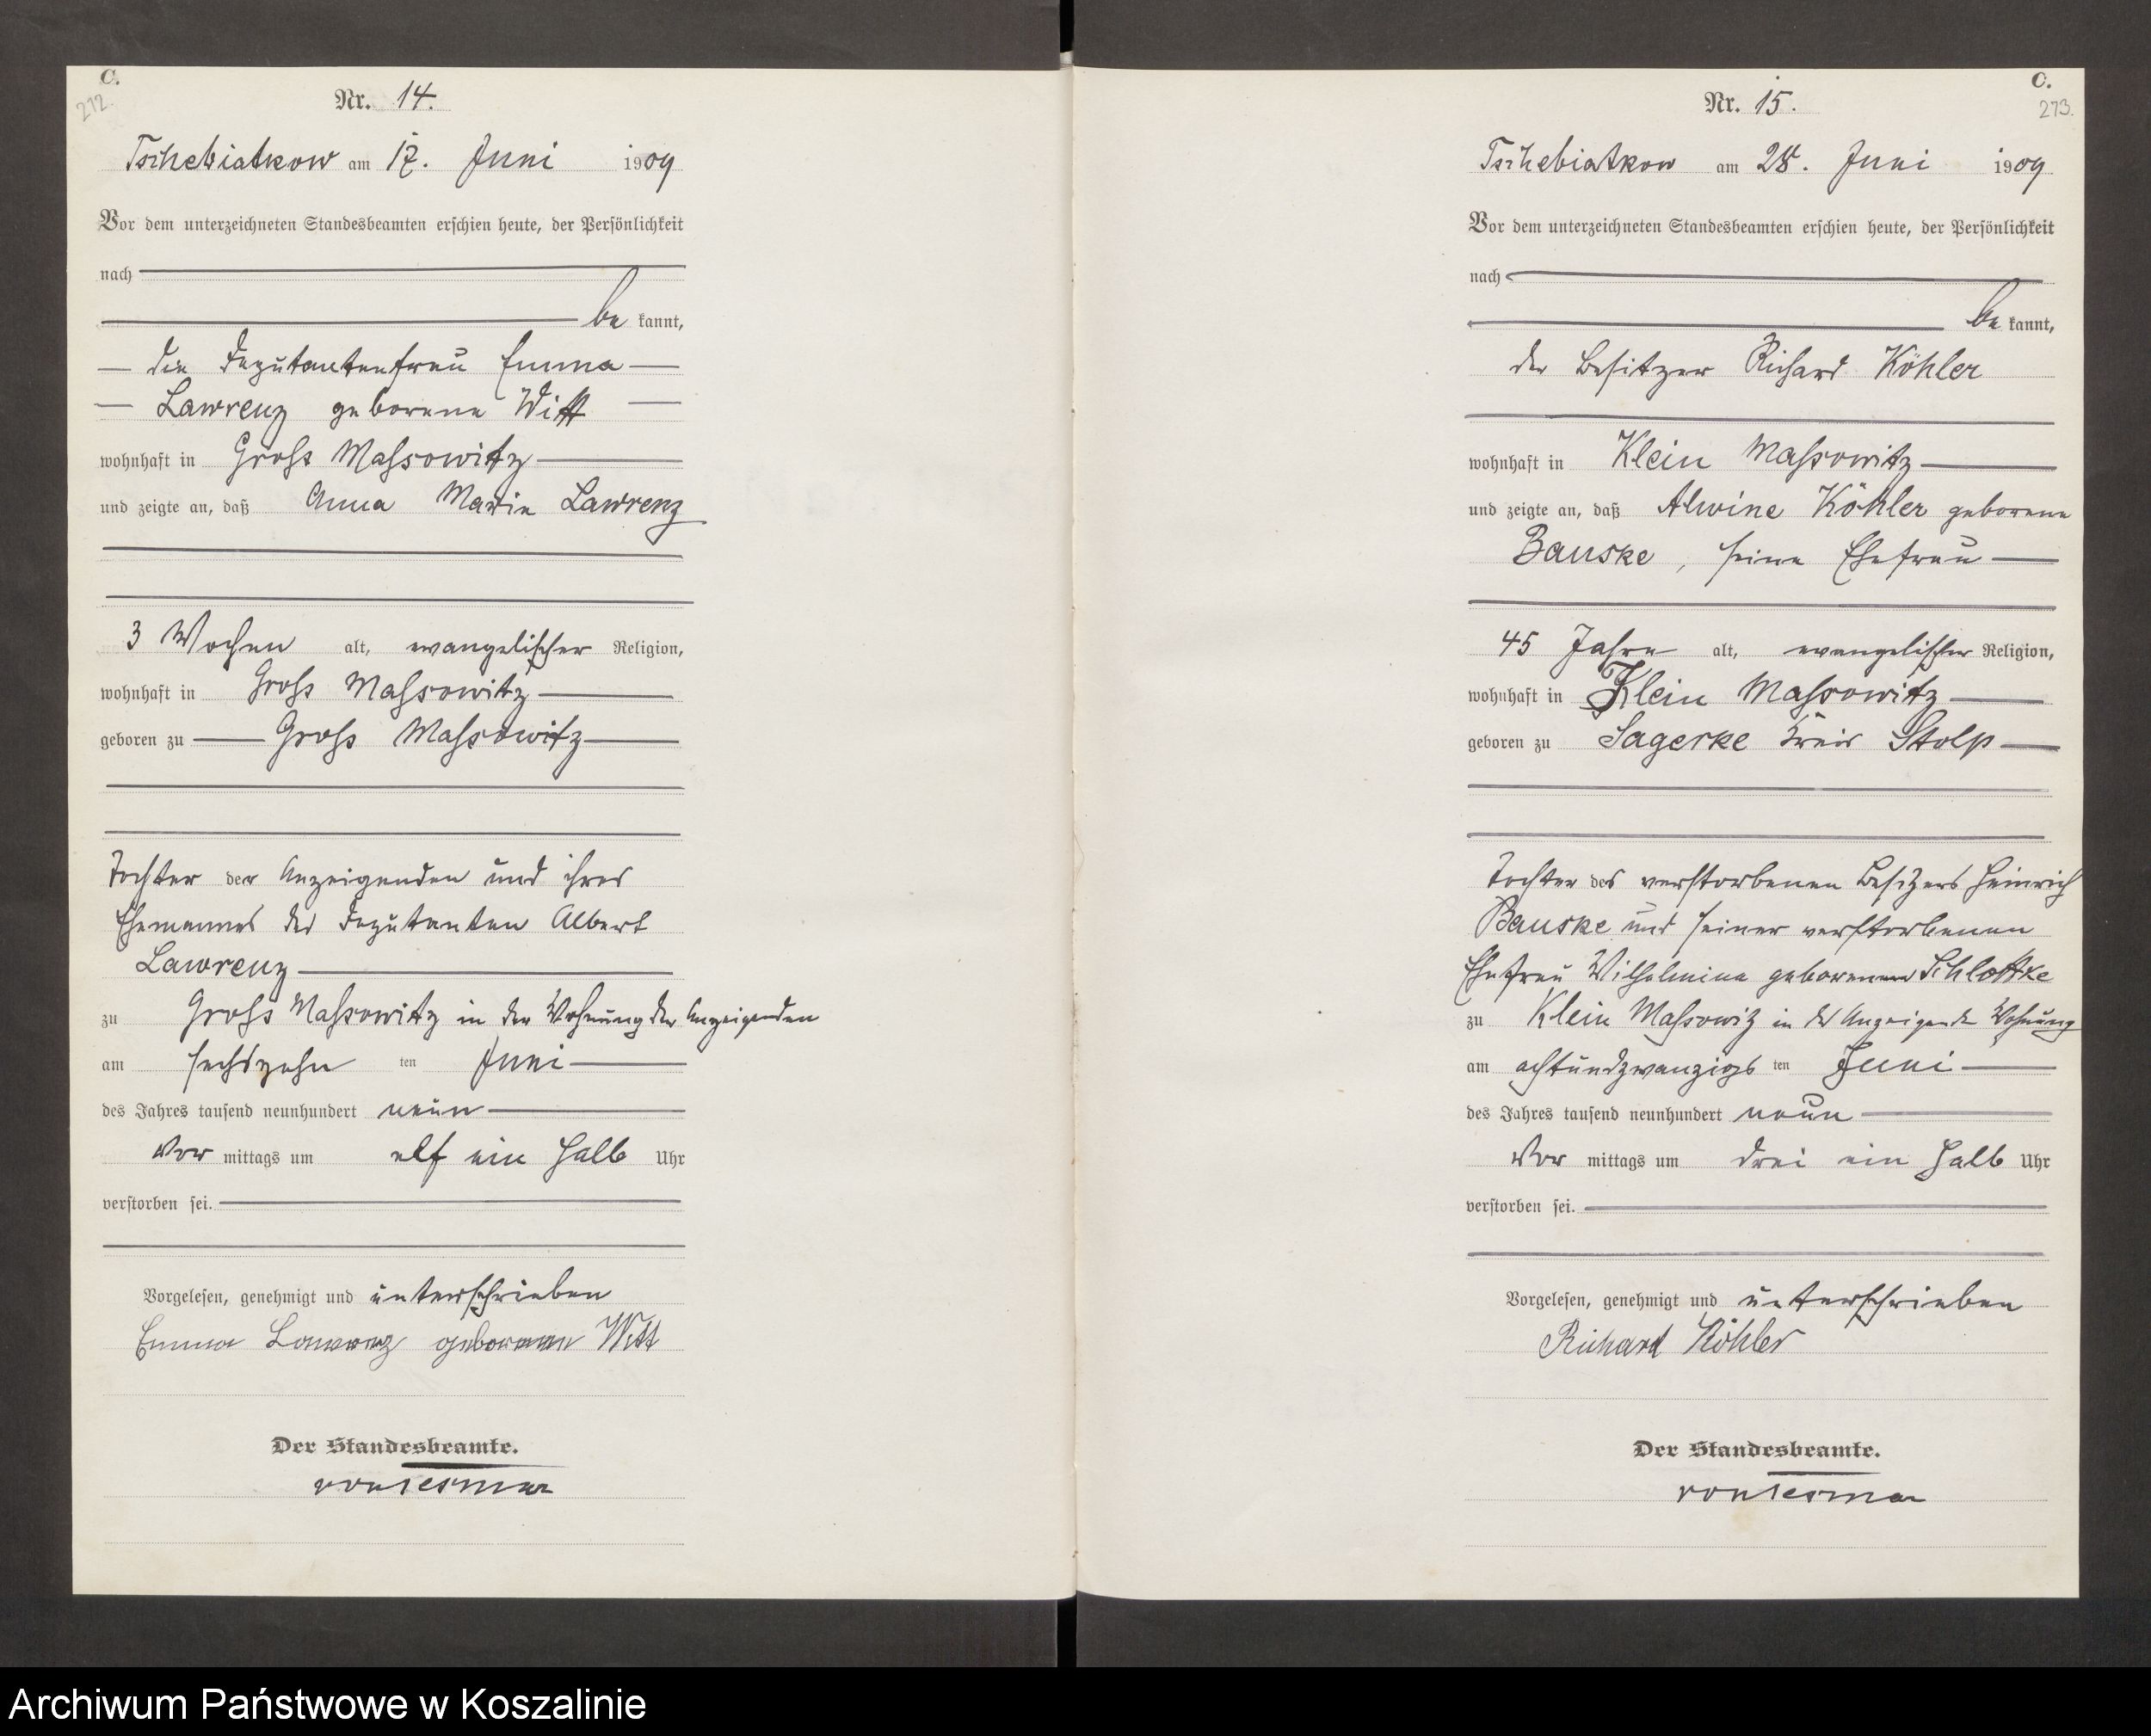 C.
272.
Nr. 14.
Tschebiatkow am 17. Juni 1909
Vor dem unterzeichneten Standesbeamten erschien heute, der Persönlichkeit
nach
be kannt,
die Deputantenfrau Emma
Lawrenz geborene Witt
wohnhaft in Groß Massowitz
und zeigte an, daß Anna Marie Lawrenz
3 Wochen alt, evangelischer Religion,
wohnhaft in Groß Massowitz
geboren zu Groß Massowitz
Tochter der Anzeigenden und ihres
Ehemannes des Deputanten Albert
Lawrenz
zu Groß Massowitz in der Wohnung der Anzeigenden
am sechszehn ten Juni
des Jahres tausend neunhundert neun
Vor mittags um elf ein halb Uhr
verstorben sei.
Vorgelesen, genehmigt und unterschrieben
Emma Lawrenz geborene Witt
Der Standesbeamte.
C.
273.
Nr. 15.
Tschebiatkow am 28. Juni 1909
Vor dem unterzeichneten Standesbeamten erschien heute, der Persönlichkeit
nach
be kannt,
der Besitzer Richard Köhler
wohnhaft in Klein Massowitz
und zeigte an, daß Alwine Köhler geborene
Bauske, seine Ehefrau
45 Jahre alt, evangelischer Religion,
wohnhaft in Klein Massowitz
geboren zu Sagerke Kreis Stolp
Tochter des verstorbenen Besitzers Heinrich
Bauske und seiner verstorbenen
Ehefrau Wilhelmine geborenen Schlottke
zu Klein Massowitz in des Anzeigenden Wohnung
am achtundzwanzigs ten Juni
des Jahres tausend neunhundert neun
Vor mittags um drei ein halb Uhr
verstorben sei.
Vorgelesen, genehmigt und unterschrieben
Richard Köhler
Der Standesbeamte.
Archiwum Państwowe w Koszalinie